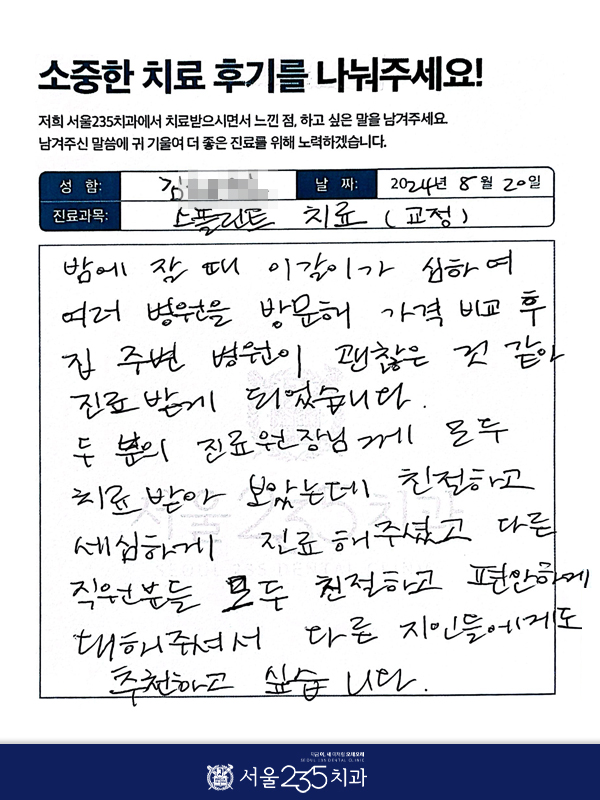 소중한 치료 후기를 나눠주세요!
저희 서울235치과에서 치료받으시면서 느낀 점, 하고 싶은 말을 남겨주세요.
남겨주신 말씀에 귀 기울여 더 좋은 진료를 위해 노력하겠습니다.
성 함: 김 날 짜: 2024년 8월 20일
진료과목: 스플린트 치료 (교정)
밤에 잘 때 이갈이가 심하여
여러 병원을 방문해 가격 비교 후
집 주변 병원이 괜찮은 것 같아
진료 받게 되었습니다.
두 분의 진료원장님께 모두
치료 받아 보았는데 친절하고
세심하게 진료해주셨고 다른
직원분들 모두 친절하고 편안하게
대해주셔서 다른 지인들에게도
추천하고 싶습니다.
서울235치과
SEOUL 235 DENTAL CLINIC
서울235치과